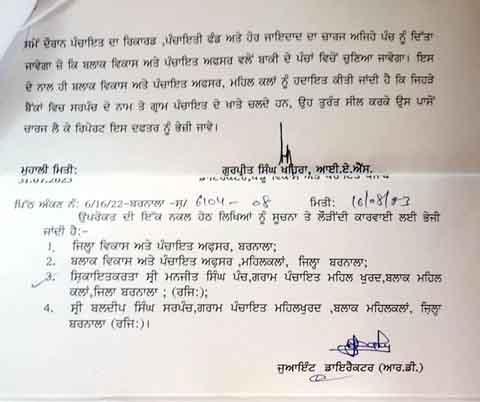 ਸਮੇਂ ਦੌਰਾਨ ਪੰਚਾਇਤ ਦਾ ਰਿਕਾਰਡ ,ਪੰਚਾਇਤੀ ਫੰਡ ਅਤੇ ਹੋਰ ਜਾਇਦਾਦ ਦਾ ਚਾਰਜ ਅਜਿਹੇ ਪੰਚ ਨੂੰ ਦਿੱਤਾ
ਜਾਵੇਗਾ ਜੋ ਕਿ ਬਲਾਕ ਵਿਕਾਸ ਅਤੇ ਪੰਚਾਇਤ ਅਫਸਰ ਵਲੋਂ ਬਾਕੀ ਦੇ ਪੰਚਾਂ ਵਿਚੋਂ ਚੁਣਿਆ ਜਾਵੇਗਾ। ਇਸ
ਦੇ ਨਾਲ ਹੀ ਬਲਾਕ ਵਿਕਾਸ ਅਤੇ ਪੰਚਾਇਤ ਅਫਸਰ, ਮਹਿਲ ਕਲਾਂ ਨੂੰ ਹਦਾਇਤ ਕੀਤੀ ਜਾਂਦੀ ਹੈ ਕਿ ਜਿਹੜੇ
ਬੈਂਕਾਂ ਵਿਚ ਸਰਪੰਚ ਦੇ ਨਾਮ ਤੇ ਗ੍ਰਾਮ ਪੰਚਾਇਤ ਦੇ ਖਾਤੇ ਚਲਦੇ ਹਨ, ਉਹ ਤੁਰੰਤ ਸੀਲ ਕਰਕੇ ਉਸ ਪਾਸੋਂ
ਚਾਰਜ ਲੈ ਕੇ ਰਿਪੋਰਟ ਇਸ ਦਫਤਰ ਨੂੰ ਭੇਜੀ ਜਾਵੇ।
ਗੁਰਪ੍ਰੀਤ ਸਿੰਘ ਖਹਿਰਾ, ਆਈ.ਏ.ਐੱਸ.
ਮੁਹਾਲੀ ਮਿਤੀ:
31.07.2023
ਪਿੱਠ ਅੰਕਣ ਨੰ: 6/16/22-ਬਰਨਾਲਾ-ਸ/ 6104-08 ਮਿਤੀ: 16/08/23
ਉਪਰੋਕਤ ਦੀ ਇੱਕ ਨਕਲ ਹੇਠ ਲਿਖਿਆਂ ਨੂੰ ਸੂਚਨਾ ਤੇ ਲੋੜੀਂਦੀ ਕਾਰਵਾਈ ਲਈ ਭੇਜੀ
ਜਾਂਦੀ ਹੈ:-
1. ਜਿਲ੍ਹਾ ਵਿਕਾਸ ਅਤੇ ਪੰਚਾਇਤ ਅਫ਼ਸਰ, ਬਰਨਾਲਾ;
2. ਬਲਾਕ ਵਿਕਾਸ ਅਤੇ ਪੰਚਾਇਤ ਅਫਸਰ ,ਮਹਿਲਕਲਾਂ, ਜਿਲ੍ਹਾ ਬਰਨਾਲਾ;
3. ਸ਼ਿਕਾਇਤਕਰਤਾ ਸ੍ਰੀ ਮਨਜੀਤ ਸਿੰਘ ਪੰਚ,ਗਰਾਮ ਪੰਚਾਇਤ ਮਹਿਲ ਖੁਰਦ,ਬਲਾਕ ਮਹਿਲ
ਕਲਾਂ,ਜਿਲਾ ਬਰਨਾਲਾ ; (ਰਜਿ:);
4. ਸ੍ਰੀ ਬਲਦੀਪ ਸਿੰਘ ਸਰਪੰਚ,ਗਰਾਮ ਪੰਚਾਇਤ ਮਹਿਲਖੁਰਦ ,ਬਲਾਕ ਮਹਿਲਕਲਾਂ, ਜਿਲ੍ਹਾ
ਬਰਨਾਲਾ (ਰਜਿ:)।
ਜੁਆਇੰਟ ਡਾਇਰੈਕਟਰ (ਆਰ.ਡੀ.)